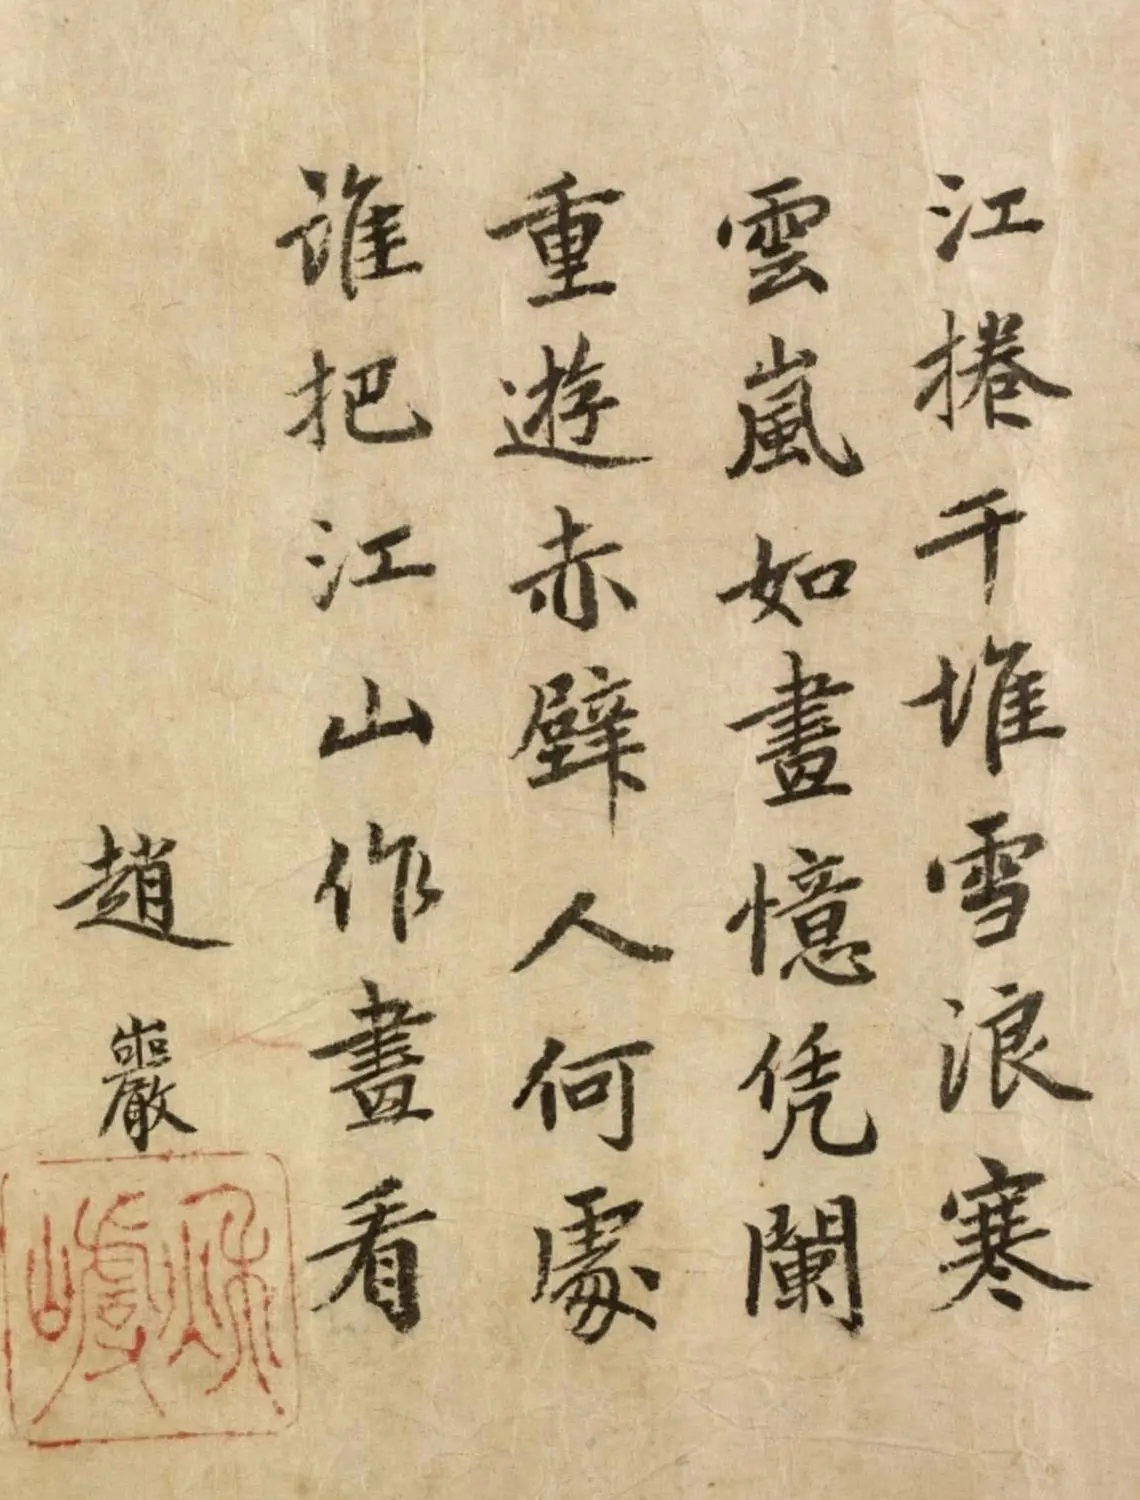 江捲千堆雪浪寒
雲嵐如畫憶凭闌
重遊赤壁人何處
誰把江山作畫看
趙巖